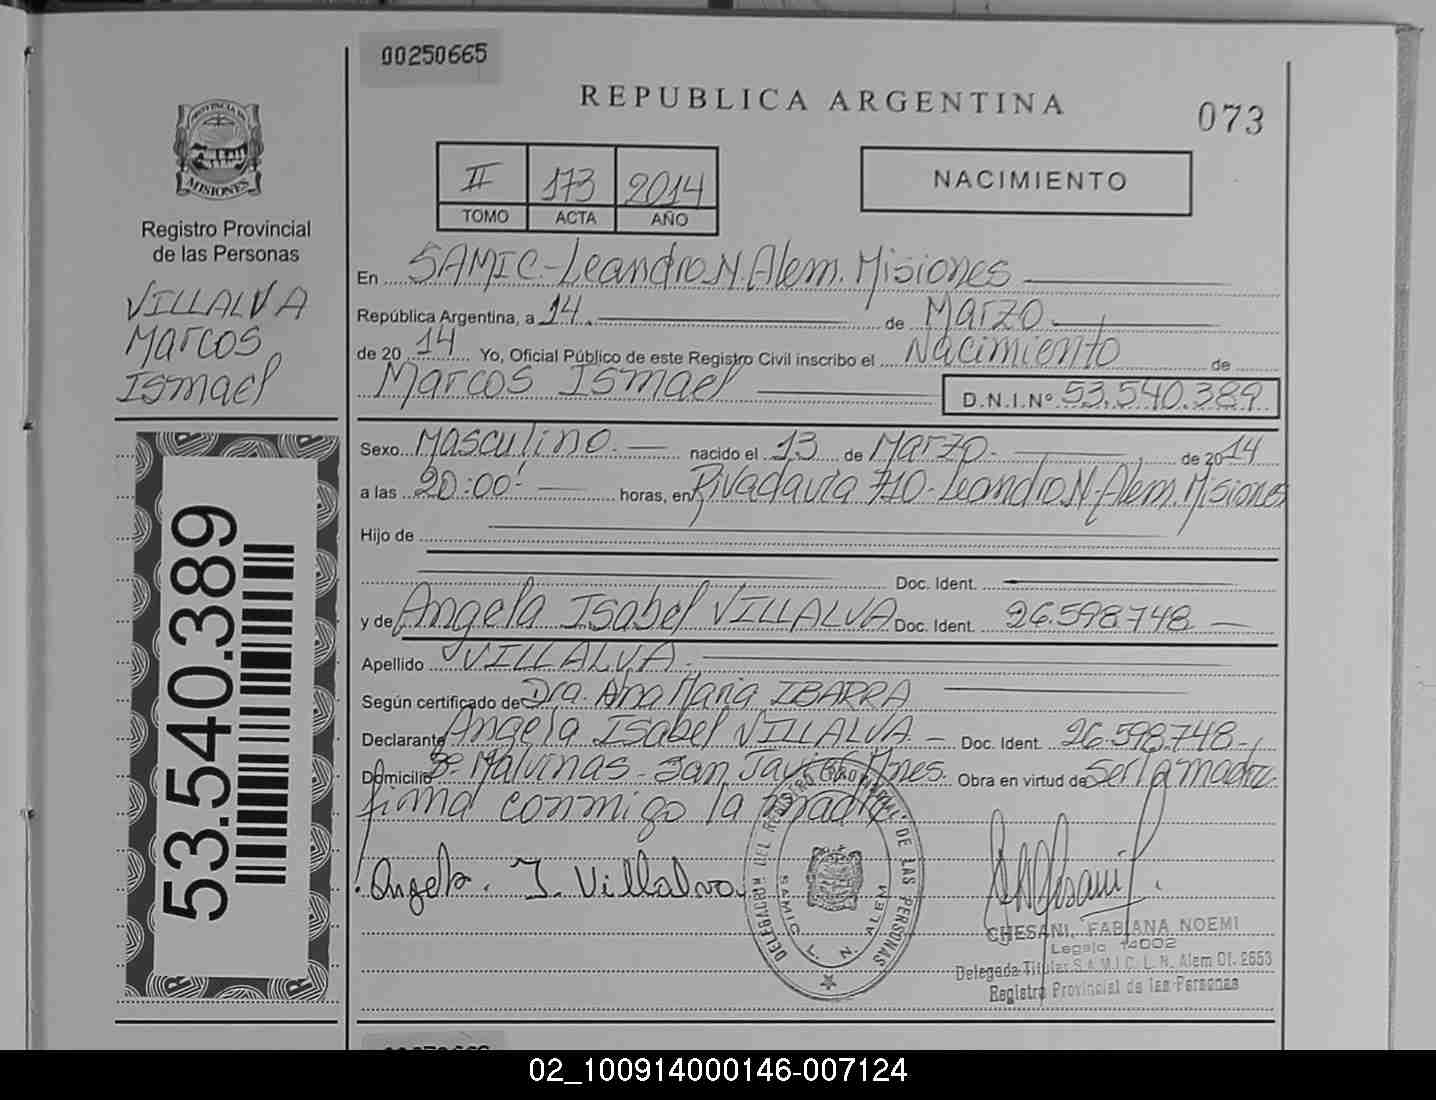 00250665
REPUBLICA ARGENTINA
073
PROVINCIA DE
MISIONES
Registro Provincial
de las Personas
VILLALVA
Marcos
Ismael
II 173 2014
TOMO ACTA AÑO
NACIMIENTO
En SAMIC-Leandro N. Alem. Misiones
República Argentina, a 14. de Marzo
de 20 14 Yo, Oficial Público de este Registro Civil inscribo el Nacimiento de
Marcos Ismael
D.N.I.Nº 53.540.389
Sexo Masculino. nacido el 13 de Marzo. de 20 14
a las 20:00' horas, en Rivadavia 710-Leandro N. Alem. Misiones
Hijo de
Doc. Ident.
y de Angela Isabel VILLALVA Doc. Ident. 26.598.748
Apellido VILLALVA.
Según certificado de Dra. Ana Maria IBARRA
Declarante Angela Isabel VILLALVA - Doc. Ident. 26.598.748-
Domicilio Bº Malvinas - San Javier Mnes. Obra en virtud de Ser la madre
firma conmigo la madre
Angela. I. Villalva
DELEGACION DEL REGISTRO PROVINCIAL DE LAS PERSONAS
SAMIC L. N. ALEM
CHESANI, FABIANA NOEMI
Legajo 14002
Delegada Titular S.A.M.I.C. L. N. Alem Of. 2653
Registro Provincial de las Personas
53.540.389
02_100914000146-007124